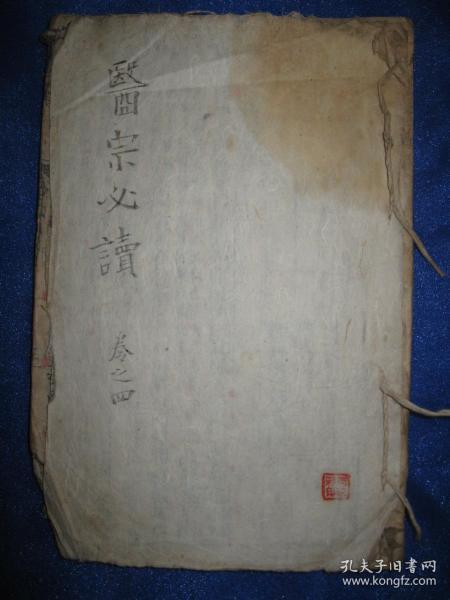 醫宗必讀
卷之四
孔夫子旧书网
www.kongfz.com